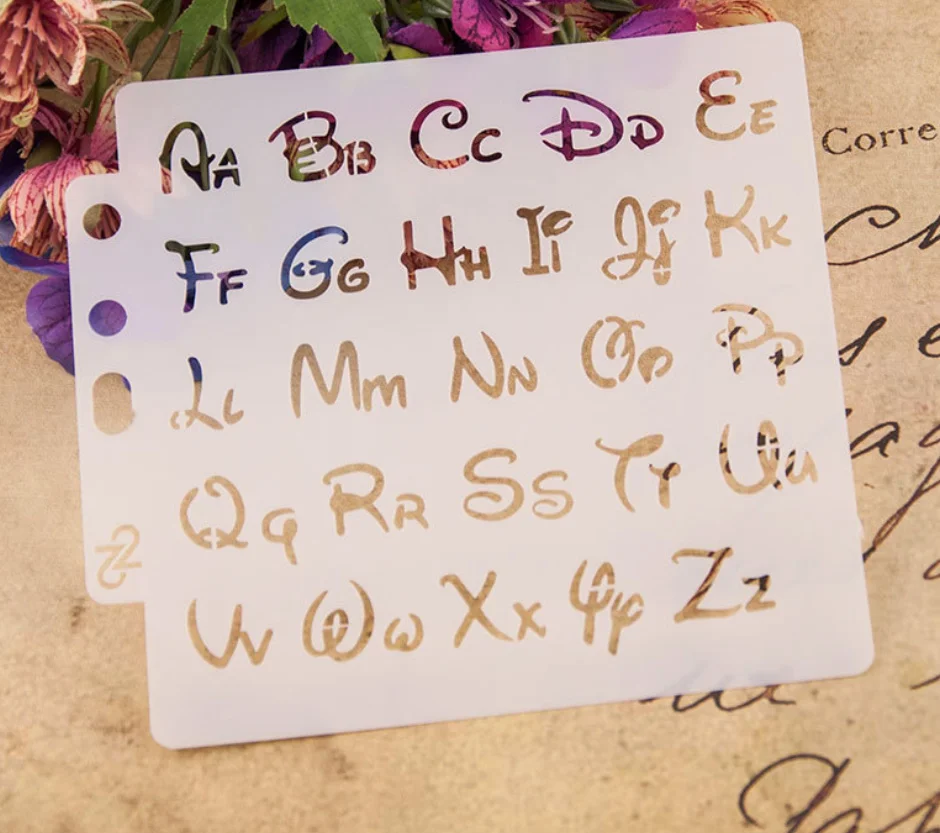 Aa Bb Cc Dd Ee
Corre
Ff Gg Hh Ii Jj Kk
Ll Mm Nn Oo Pp
Qq Rr Ss Tt Uu
Vv Ww Xx Yy Zz